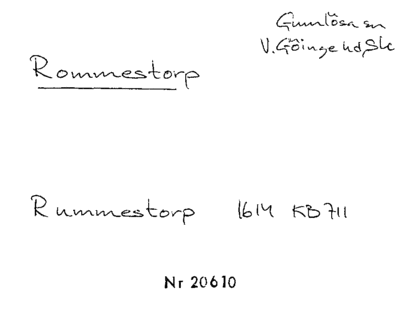 Gumlösa sn
V. Göinge hd, Sk
Rommestorp
Rummestorp 1614 KB 711
Nr 20610